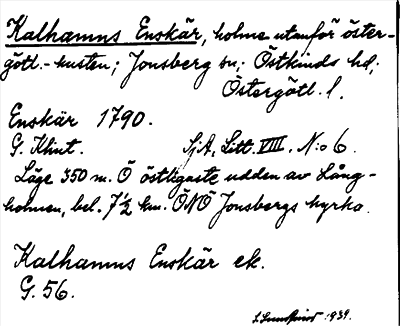 Kalhamns Enskär, holme utanför öster-
götl.-kusten; Jonsberg sn; Östkinds hd;
Östergötl. l.
Enskär 1790.
G. Klint. SjA, Litt. VIII, N:o 6.
Läge 350 m. Ö östligaste udden av Lång-
holmen, bel. 7½ km. ÖNÖ Jonsbergs kyrka.
Kalhamns Enskär ek.
G. 56.
1939.